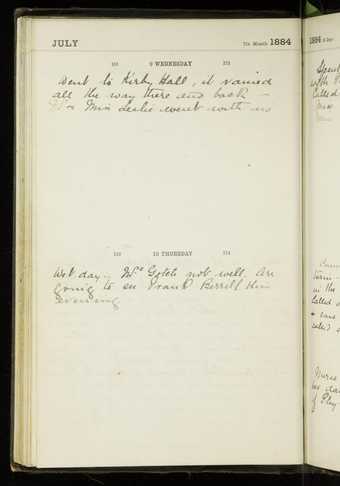 JULY 7th Month 1884
191 9 WEDNESDAY 175
Went to Kirby Hall, it rained
all the way there and back –
Mr & Miss Leslie went with us
192 10 THURSDAY 174
Wet day – Mrs Gotch not well. Are
going to see Frank Birrell this
evening
1884
Called
Nurse
of Play